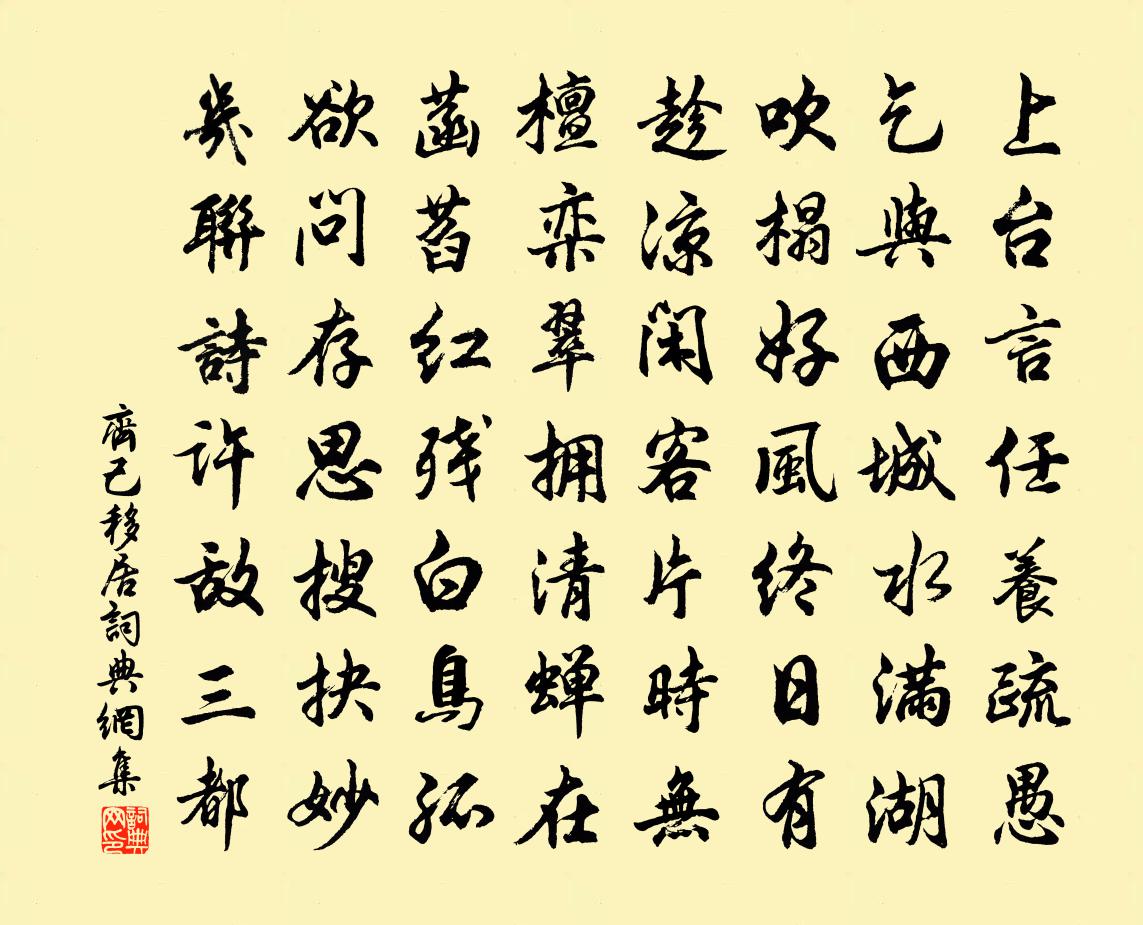 上台言任養疏愚
乞與西城水滿湖
吹榻好風終日有
趁涼閑客片時無
檀栾翠拥清蝉在
菡萏红残白鳥孤
欲問存思搜抉妙
幾聯詩許敌三都
齊己移居詞典網集
詞典网印